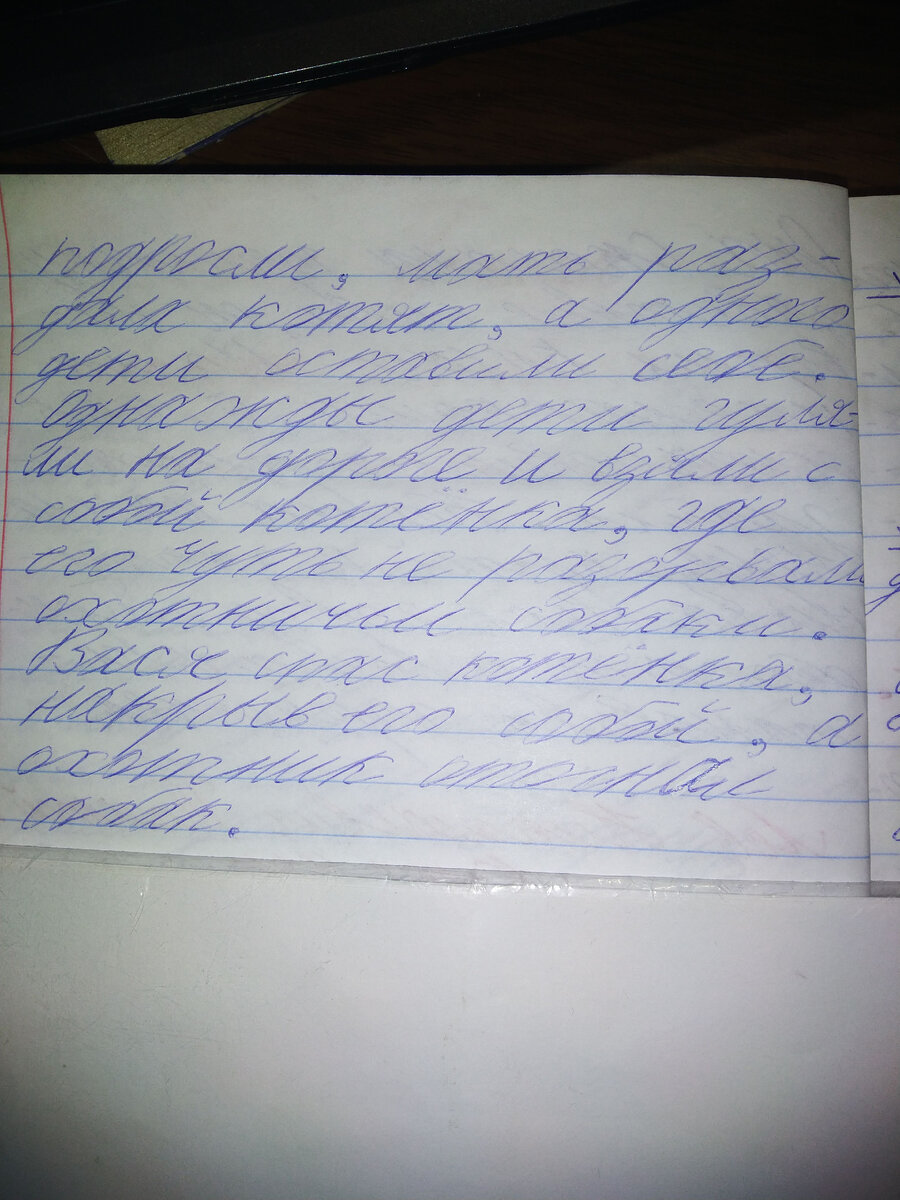 подросли, мать раз-
дала котят, а одного
дети оставили себе.
Однажды дети гуля-
ли на дороге и взяли с
собой котёнка, где
его чуть не разорвали
охотничьи собаки.
Вася спас котёнка,
накрыв его собой, а
охотник отогнал
собак.